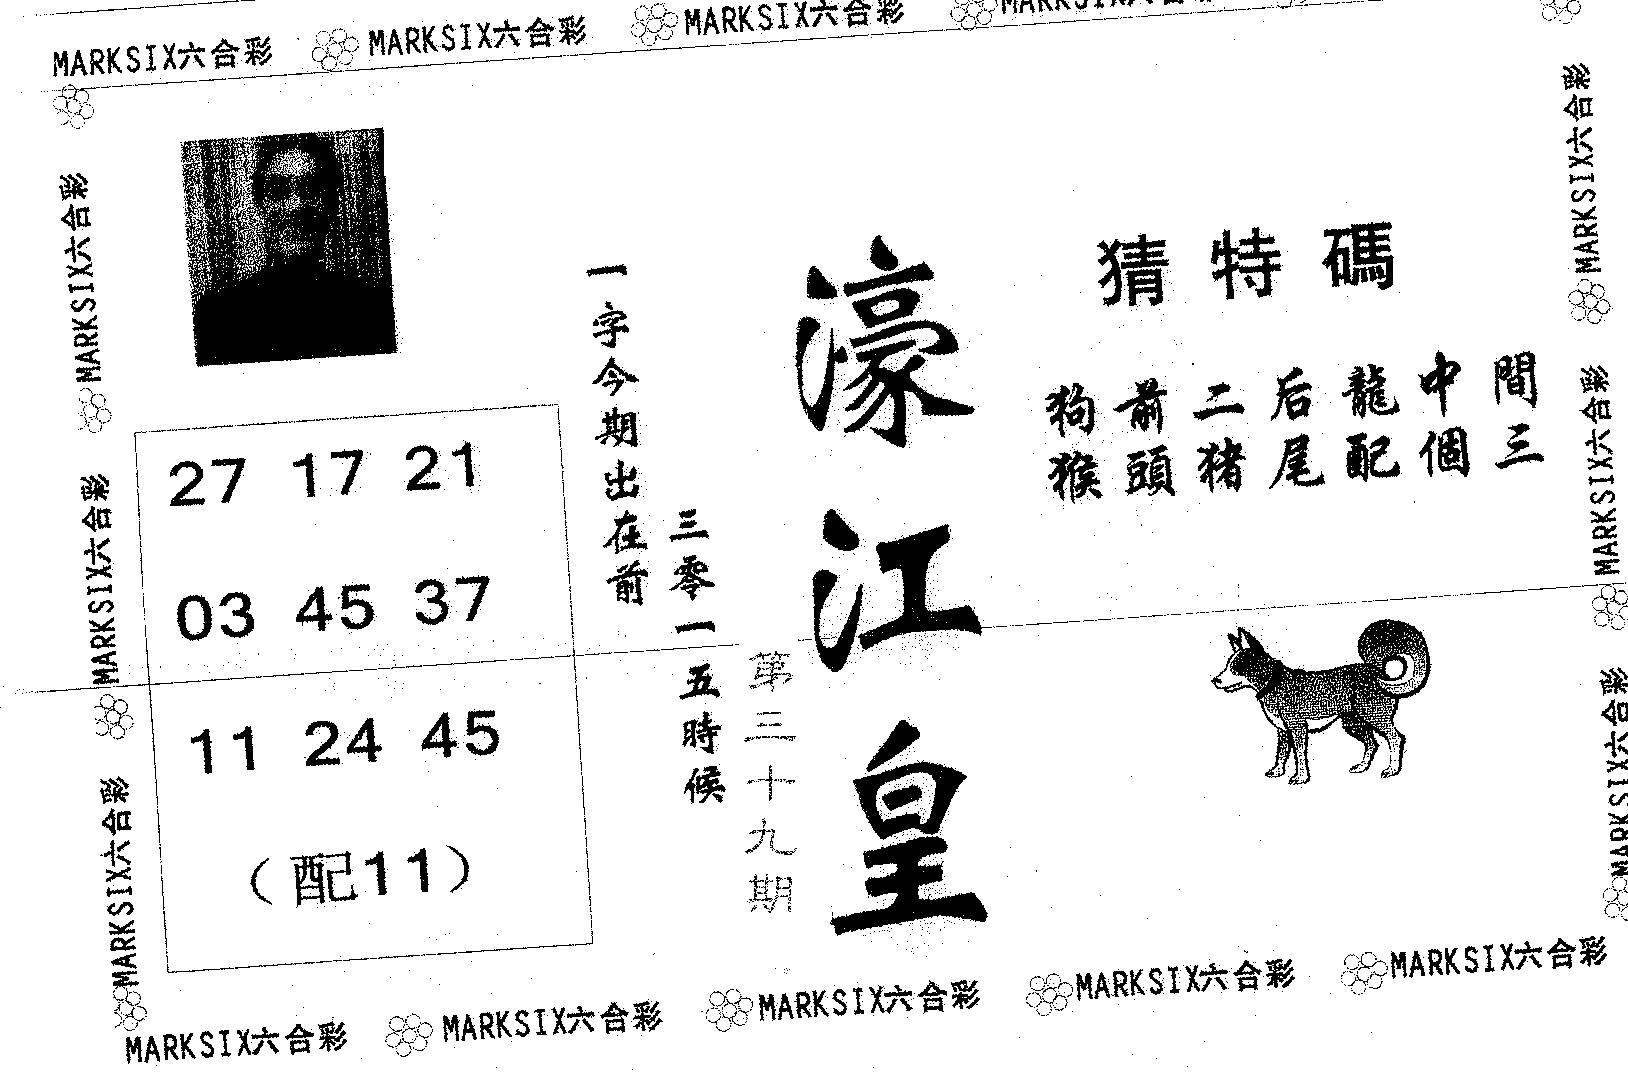 MARKSIX六合彩 MARKSIX六合彩 MARKSIX六合彩 MARKSIX六合彩
MARKSIX六合彩
MARKSIX六合彩
MARKSIX六合彩
27 17 21
03 45 37
11 24 45
（配11）
一字今期出在前
三零一五時候
第三十九期
濠江皇
猜特碼
狗前二后龍中間
猴頭豬尾配個三
MARKSIX六合彩
MARKSIX六合彩
MARKSIX六合彩
MARKSIX六合彩 MARKSIX六合彩 MARKSIX六合彩 MARKSIX六合彩 MARKSIX六合彩